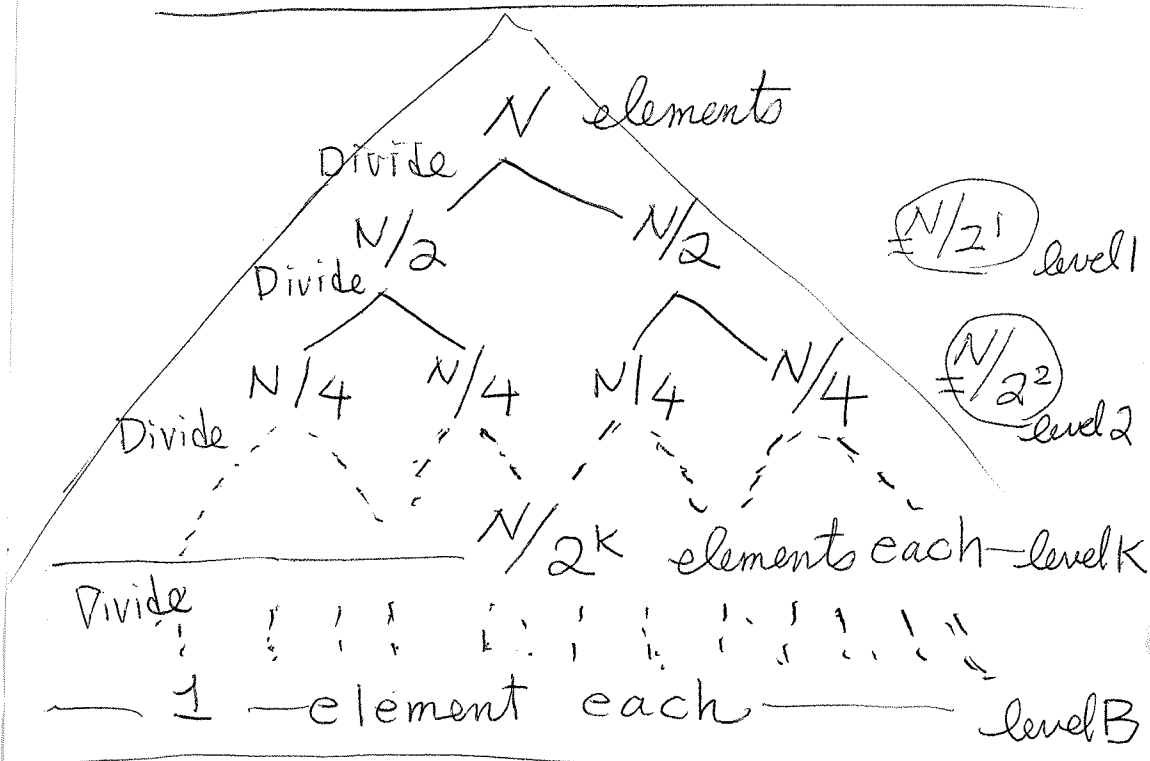 N elements
Divide
N/2 N/2 =N/2¹ level 1
Divide
N/4 N/4 N/4 N/4 =N/2² level 2
Divide
N/2ᴷ elements each — level K
Divide
1 — element each — level B